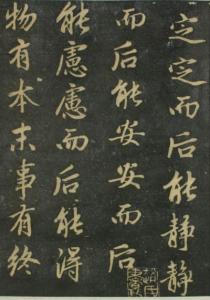 定定而后能静静
而后能安安而后
能慮慮而后能淂
物有本末事有終